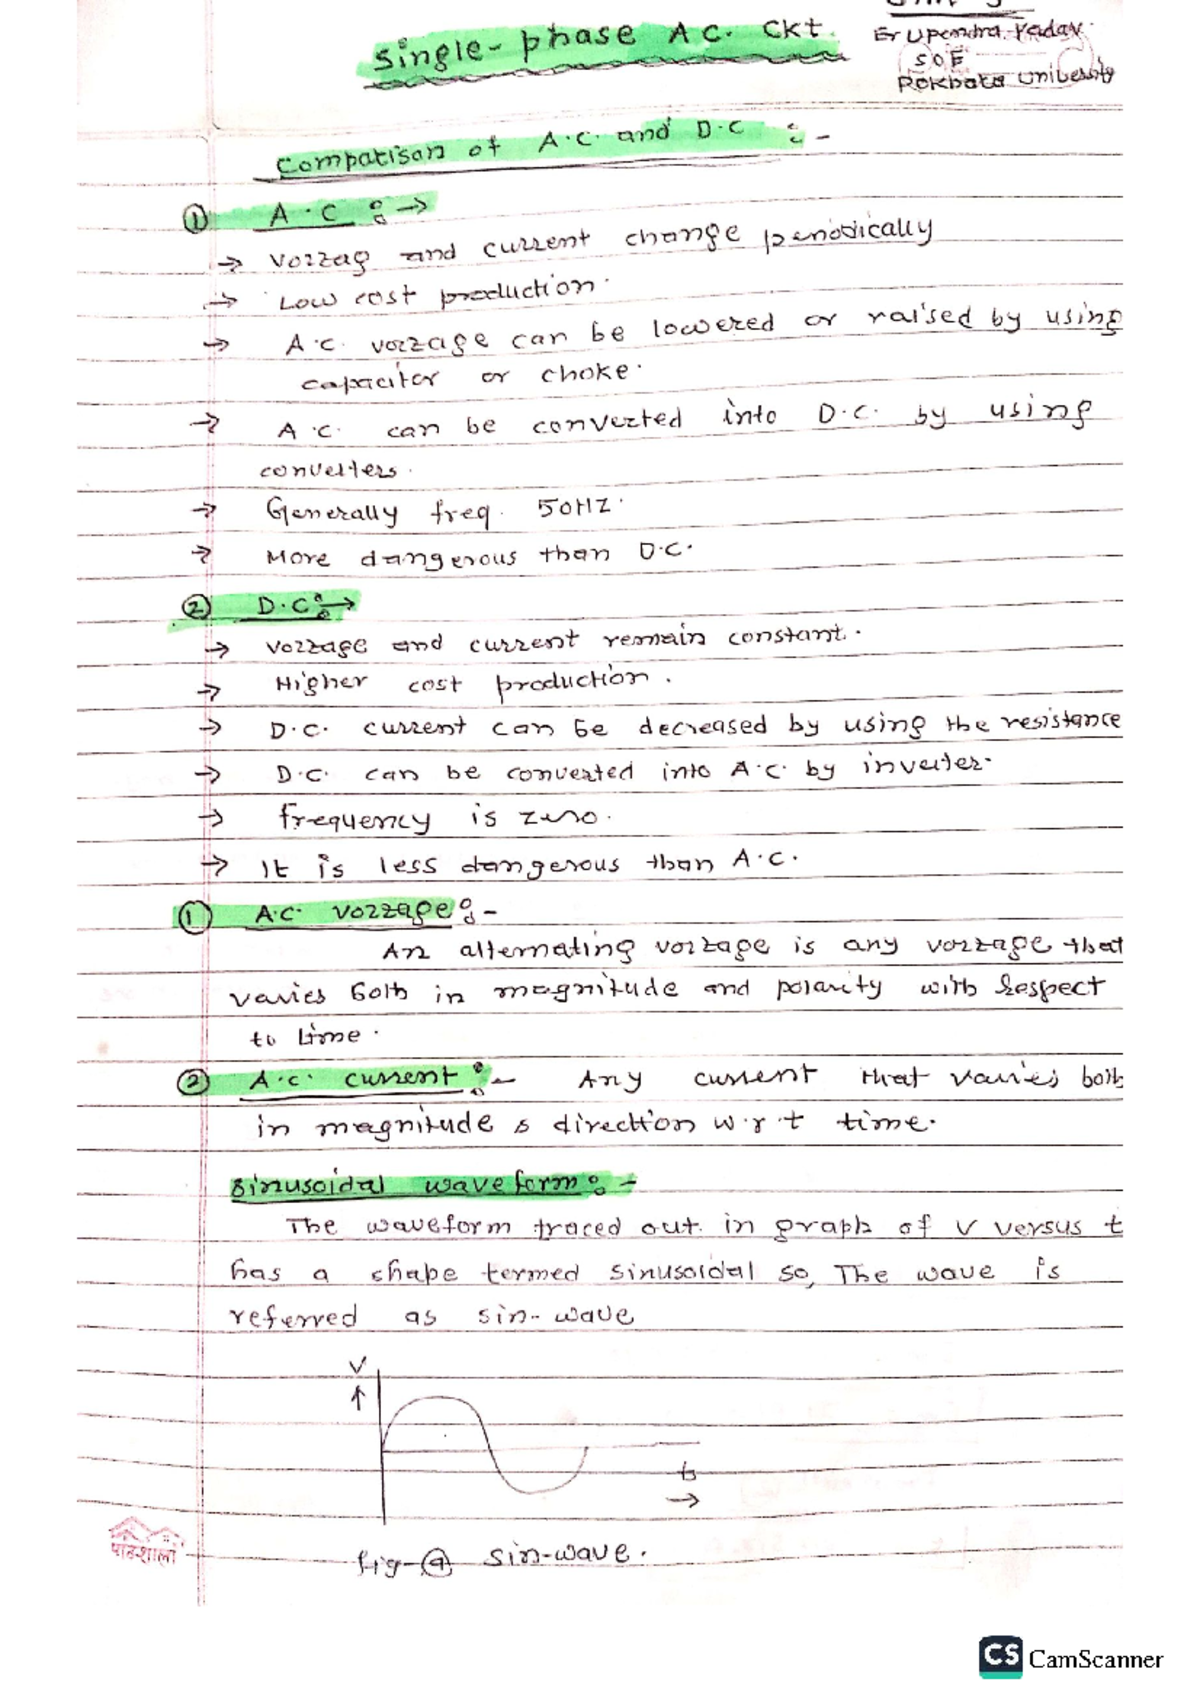 Single-phase A.C. Ckt.
Er Upendra Yadav
SOE
Pokhara University
Comparison of A.C. and D.C :-
① A.C :→
→ Voltag and current change periodically
→ Low cost production.
→ A.C. voltage can be lowered or raised by using
capacitor or choke.
→ A.C. can be converted into D.C. by using
converters.
→ Generally freq. 50HZ.
→ More dangerous than D.C.
② D.C :→
→ Voltage and current remain constant.
→ Higher cost production.
→ D.C. current can be decreased by using the resistance
→ D.C. can be converted into A.C. by inverter.
→ frequency is zero.
→ It is less dangerous than A.C.
① A.C. Voltage :-
An alternating voltage is any voltage that
varies both in magnitude and polarity with respect
to time.
② A.C. current :- Any current that varies both
in magnitude & direction w.r.t time.
Sinusoidal waveform :-
The waveform traced out in graph of V versus t
has a shape termed sinusoidal so, The wave is
referred as sin-wave
V
↑
t
→
fig-ⓐ sin-wave.
पाठशाला
CS CamScanner